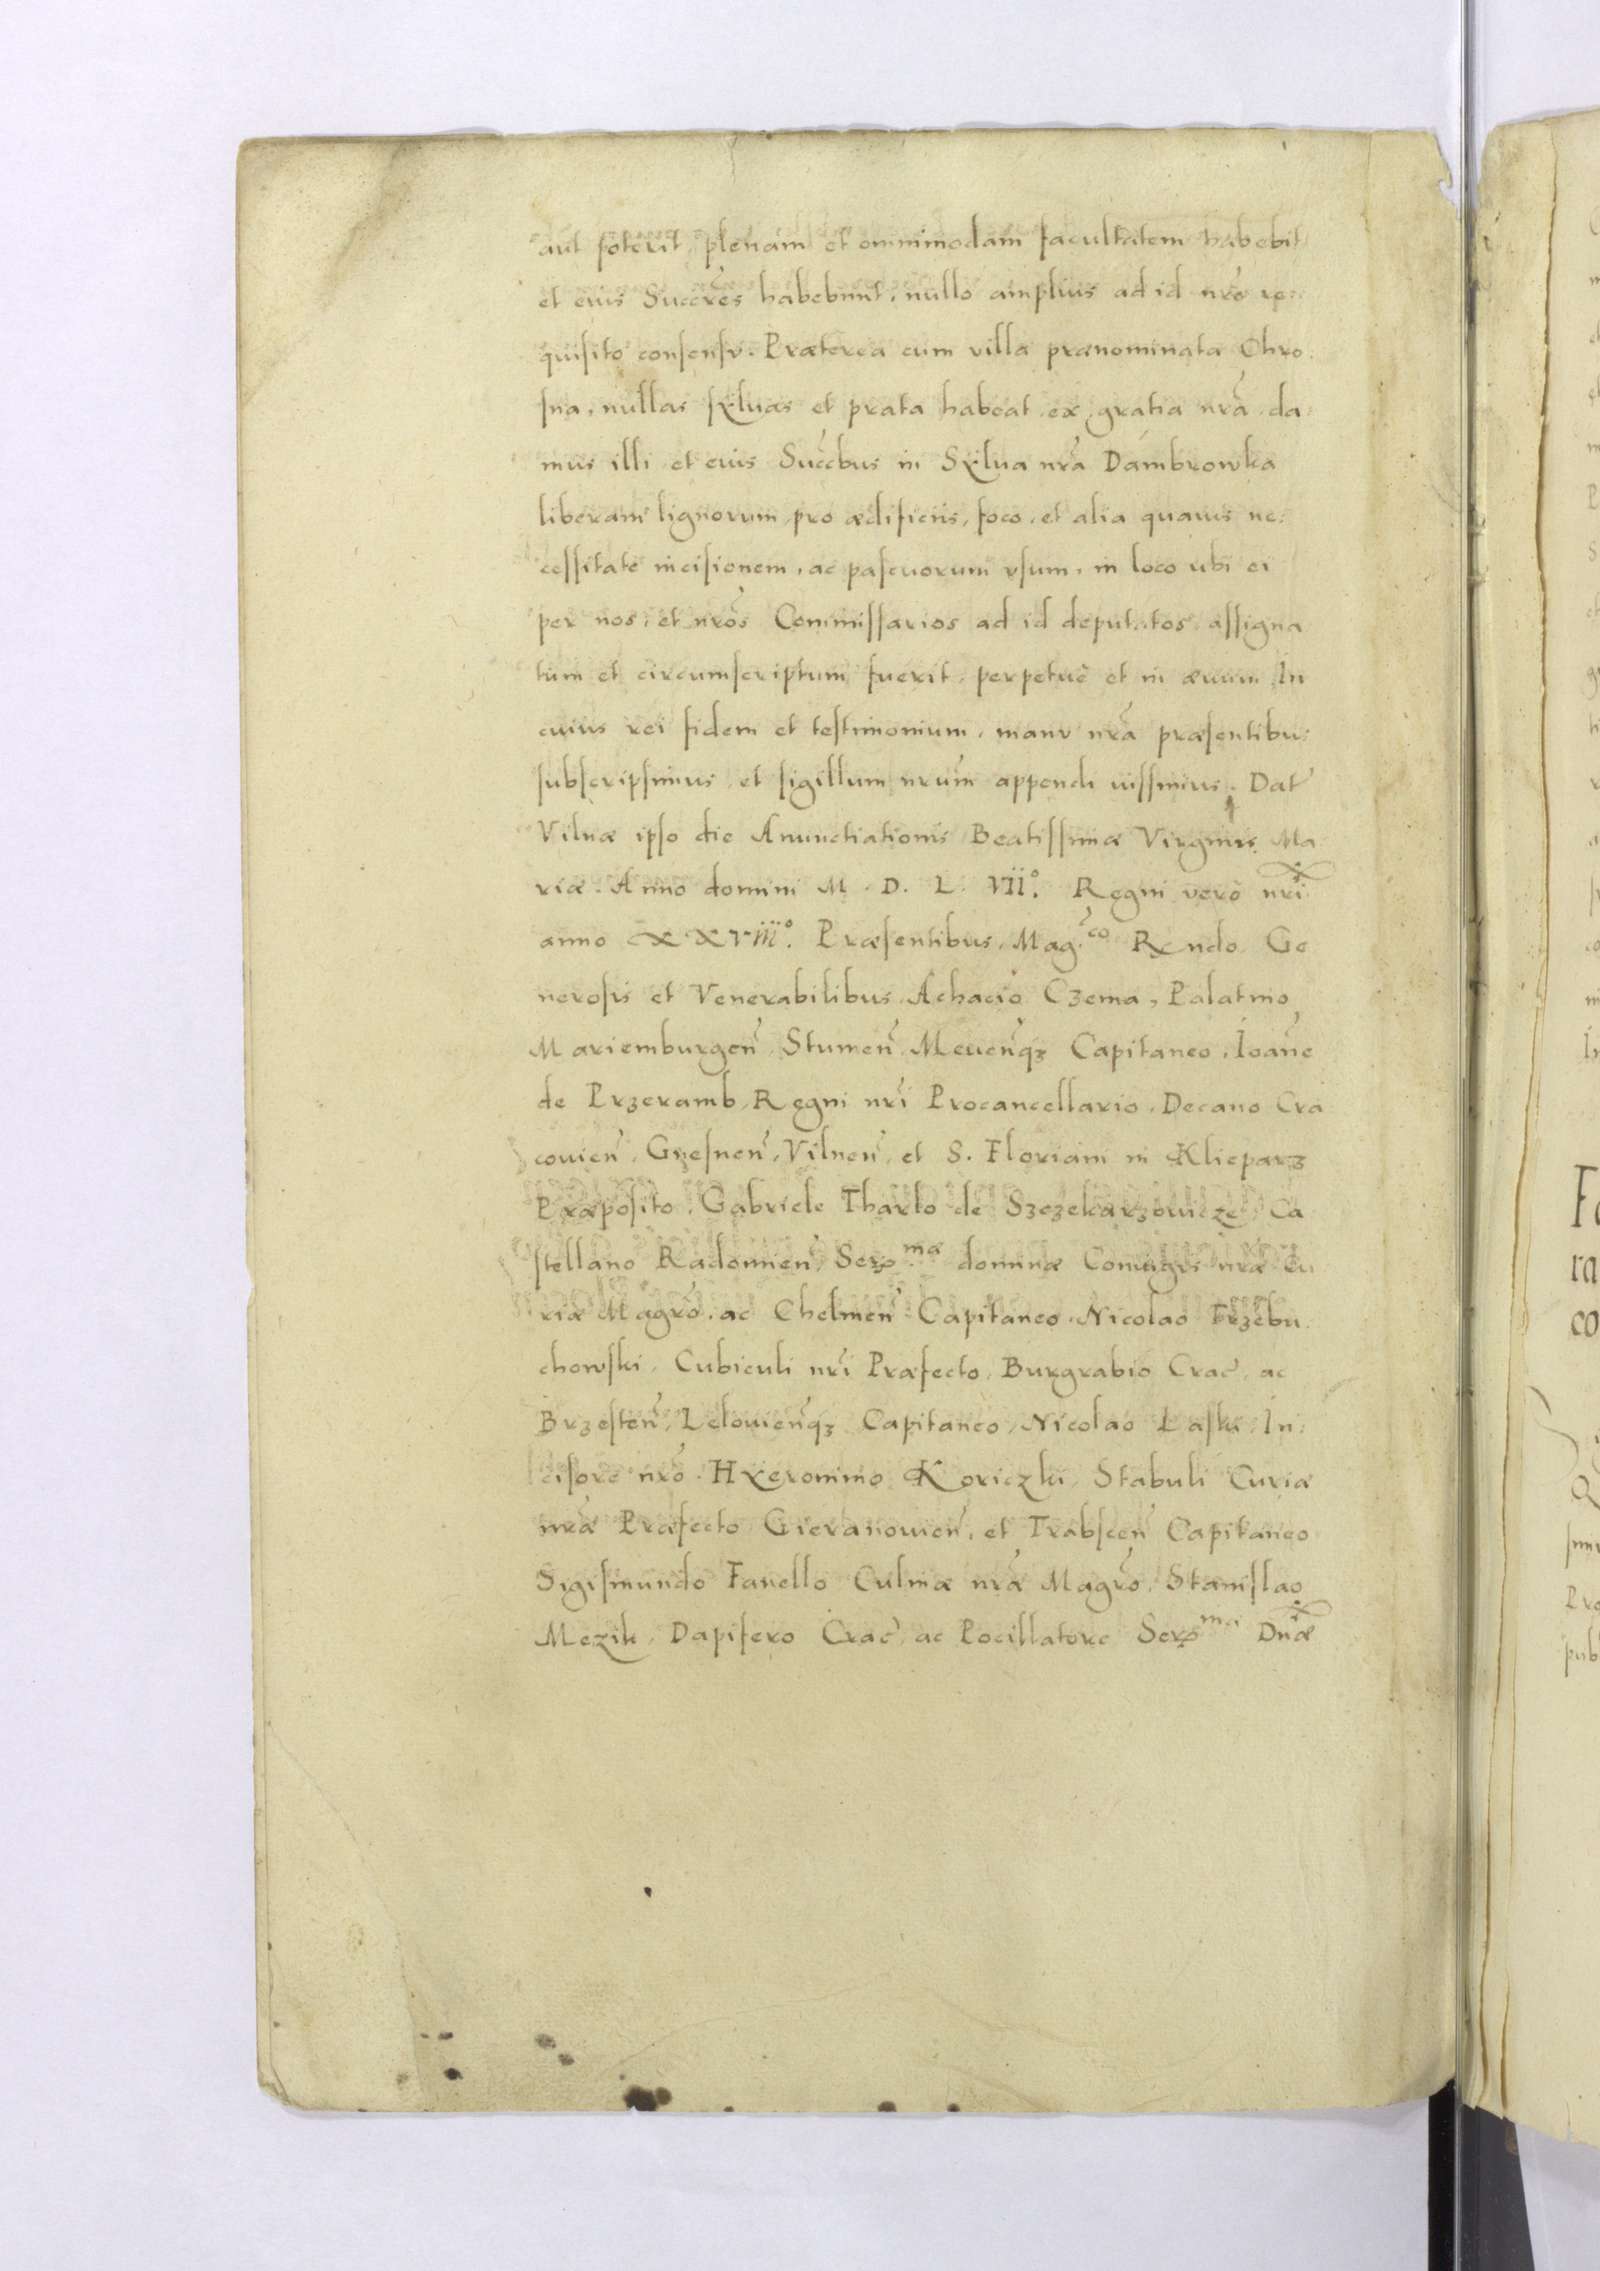 aut poterit, plenam et omnimodam facultatem habebit
et eius Succr̃es habebunt, nullo amplius ad id nr̃o re:
quisito consensv. Præterea cum villa prænominata Chro:
sna, nullas sÿluas et prata habeat, ex gratia nr̃a, da:
mus illi et eius Succ̃bus in Sÿlua nr̃a Dambrowka
liberam lignorum, pro ædificiis, foco, et alia quauis ne:
cessitate incisionem, ac pascuorum vsum, in loco ubi ei
per nos, et nr̃os Commissarios ad id deputatos, assigna
tum et circumscriptum fuerit, perpetuè et in æuum In
cuius rei fidem et testimonium, manv nr̃a præsentibu:
subscripsimus, et sigillum nrũm appendi iussimus. Dat̃
Vilnæ ipso die Anunctiationis Beatissimæ Virginis Ma
riæ. Anno domini M. D. L. VII°. Regni verò nr̃i
anno XXVIII°. Præsentibus, Mag.co Rendo Ge
nerosis et Venerabilibus, Achacio Czema, Palatino
Mariemburgeñ, Stumeñ, Meueñqз Capitaneo, Ioañe
de Przeramb, Regni nr̃i Procancellario, Decano Cra
couieñ, Gnesneñ, Vilneñ, et S. Floriani in Klieparz
Præposito, Gabriele Tharlo de Szczekarzouicze, Ca
stellano Radomieñ, Ser.mæ dominæ Coniugis nr̃æ Cu
riæ Magr̃o, ac Chelmeñ Capitaneo, Nicolao Trzebu
chowski, Cubiculi nr̃i Præfecto, Burgrabio Crac̃, ac
Brzesteñ, Lelouieñqз Capitaneo, Nicolao Laski, In:
cisore nr̃o. Hÿeronimo Koriczki, Stabuli Curiæ
nr̃æ Præfecto, Gieranouieñ, et Trabsceñ Capitaneo
Sigismundo Fanello Culinæ nr̃æ Magr̃o, Stanislao
Mezik, Dapifero Crac̃, ac Pocillatore Ser.mæ Dñæ